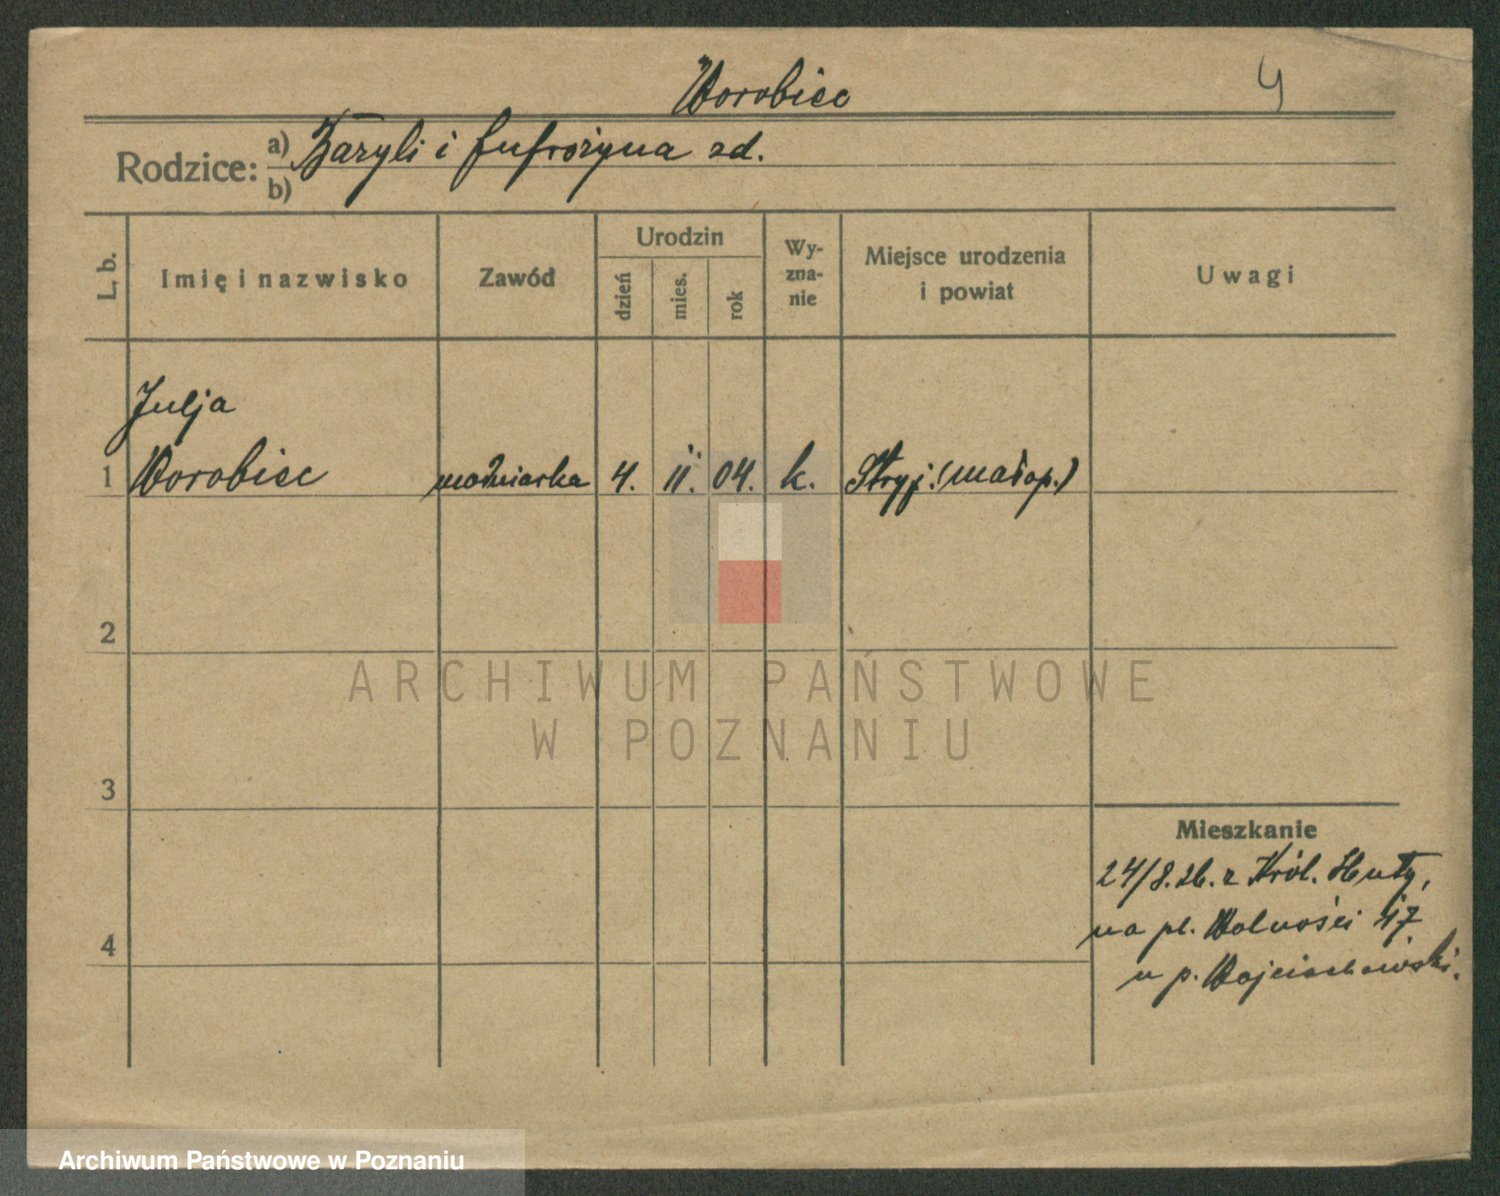 Worobiec
4
Rodzice: a) Bazyli i Eufrozyna zd.
b)
L. b.
Imię i nazwisko
Zawód
Urodzin
dzień
mies.
rok
Wy-
zna-
nie
Miejsce urodzenia
i powiat
Uwagi
Julja
1 Worobiec modniarka 4. II. 04. k. Stryj. (małop.)
2
3
4
Mieszkanie
24/8.26. z Król. Huty,
na pl. Wolności 17
u p. Wojciechowski.
ARCHIWUM PAŃSTWOWE
W POZNANIU
Archiwum Państwowe w Poznaniu